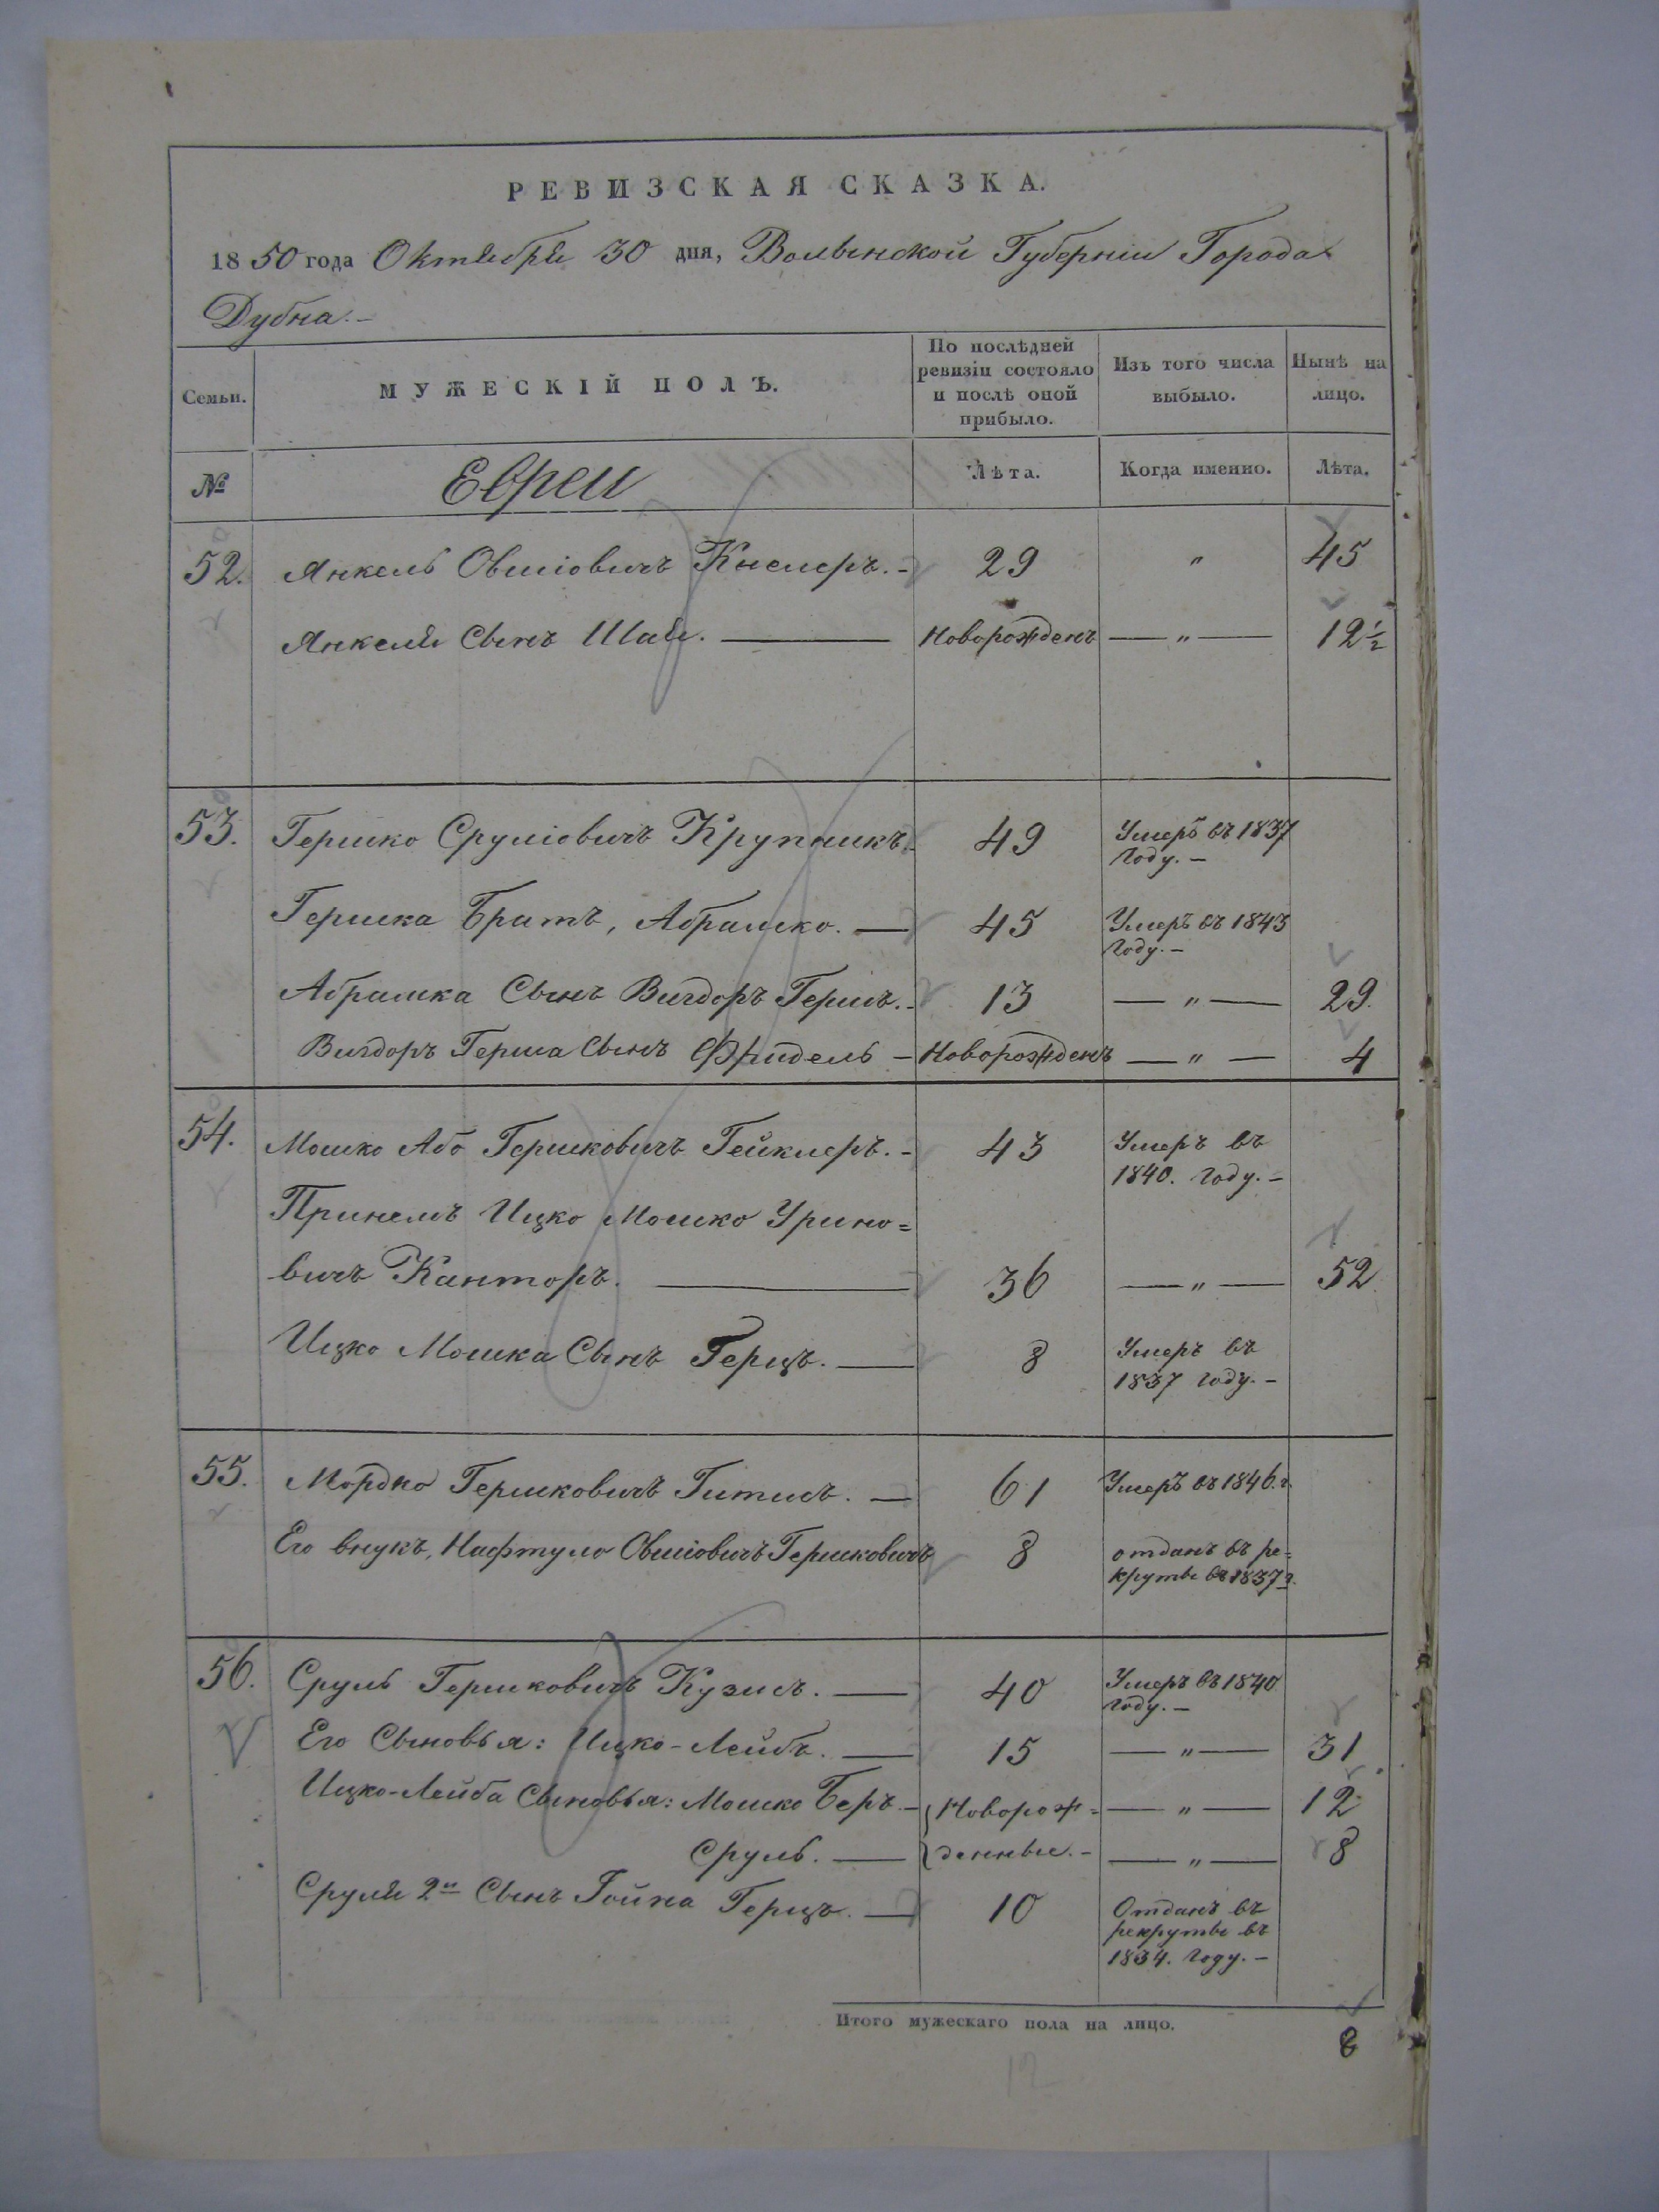 РЕВИЗСКАЯ СКАЗКА.
1850 года Октября 30 дня, Волынской Губерніи Города
Дубна.-
Семьи.
МУЖЕСКІЙ ПОЛЪ.
По послѣдней ревизіи состояло и послѣ оной прибыло.
Изъ того числа выбыло.
Нынѣ на лицо.
№ Евреи Лѣта. Когда именно. Лѣта.
52. Янкель Овшіовичъ Кнелеръ.- 29 " 45
Янкеля Сынъ Шая. — Новорожденъ — " — 12½
53. Гершко Сруліовичъ Крупникъ.- 49 Умеръ въ 1837
Году.-
Гершка Братъ, Абрамко. — 45 Умеръ въ 1843
Году.-
Абрамка Сынъ Вигдоръ Гершъ.- 13 — " — 29.
Вигдоръ Герша Сынъ Фридель - Новорожденъ — " — 4
54. Мошко Або Гершковичъ Гейклеръ.- 43 Умеръ въ
1840. Году.-
Ицко Мошко Урино=
вичъ Канторъ. — 36 — " — 52.
Ицко Мошка Сынъ Герцъ. — 8 Умеръ въ
1837 году.-
55. Мордко Гершковичъ Гитисъ. — 61 Умеръ въ 1846.г.
Его внукъ, Нафтуло Овшіовичъ Гершковичъ 8 отданъ въ ре=
круты въ 1837 г.
56. Сруль Гершковичъ Кузисъ. — 40 Умеръ въ 1840
году.-
Его Сыновья: Ицко-Лейбъ. — 15 — " — 31
Ицко-Лейба Сыновья: Мошко Беръ.- Новорож= — " — 12
Сруль. — денные.- — " — 8
Сруля 2й Сынъ Гойна Герцъ. — 10 Отданъ въ
рекруты въ
1834. Году.-
Итого мужескаго пола на лицо. 8
12